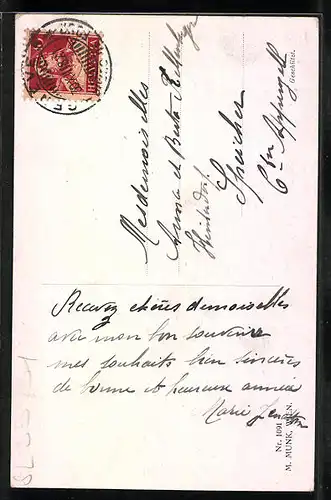 Mesdemoiselles
Anna et Berta
Speicher
Ct. Appenzell
Recevez chères demoiselles
avec mon bon souvenir
mes souhaits bien sincères
de bonne et heureuse année
Marie
Nr. 1091
M. MUNK, WIEN.
Geschützt.
HELVETIA